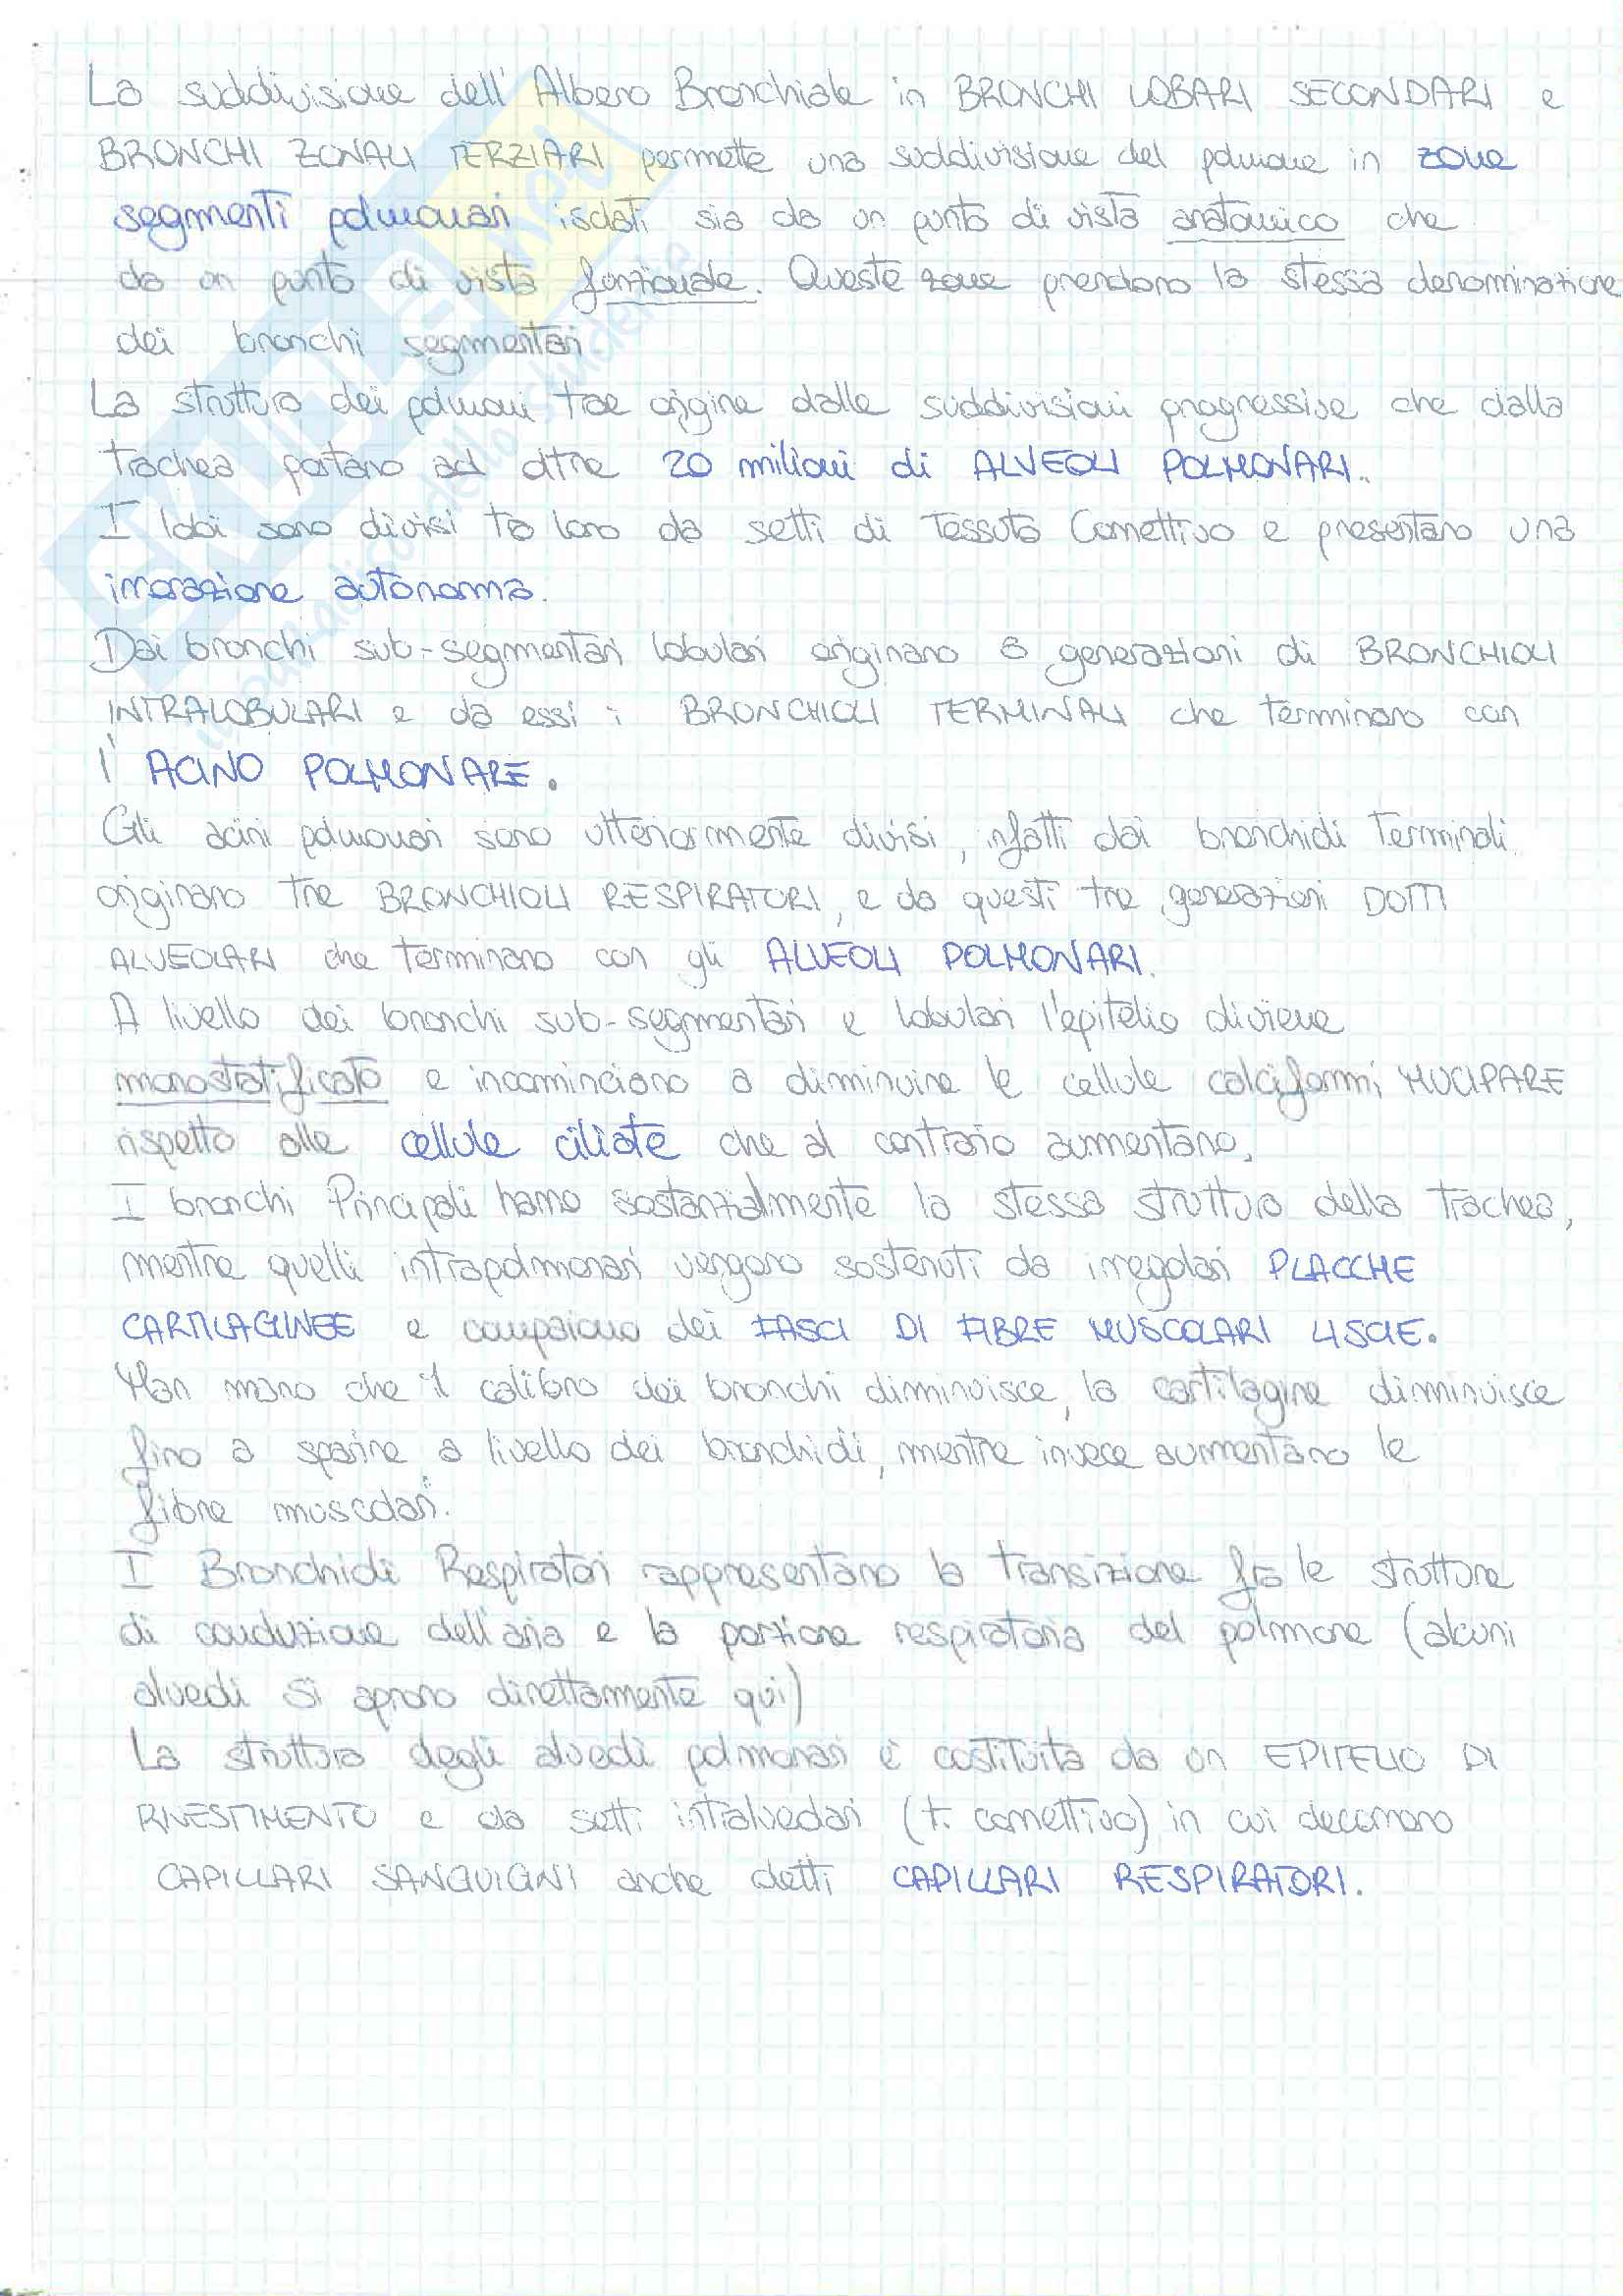 La suddivisione dell'Albero Bronchiale in BRONCHI LOBARI SECONDARI e
BRONCHI ZONALI TERZIARI permette una suddivisione del polmone in zone
segmenti polmonari isolati sia da un punto di vista anatomico che
da un punto di vista funzionale. Queste zone prendono la stessa denominazione
dei bronchi segmentari.
La struttura dei polmoni trae origine dalle suddivisioni progressive che dalla
trachea portano ad oltre 20 milioni di ALVEOLI POLMONARI.
I lobi sono divisi tra loro da setti di Tessuto Connettivo e presentano una
innervazione autonoma.
Dai bronchi sub-segmentari lobulari originano 6 generazioni di BRONCHIOLI
INTRALOBULARI e da essi i BRONCHIOLI TERMINALI che terminano con
l'ACINO POLMONARE.
Gli acini polmonari sono ulteriormente divisi, infatti dai bronchioli Terminali
originano tre BRONCHIOLI RESPIRATORI, e da questi tre generazioni DOTTI
ALVEOLARI che terminano con gli ALVEOLI POLMONARI.
A livello dei bronchi sub-segmentari e lobulari l'epitelio diviene
monostratificato e incominciano a diminuire le cellule calciformi MUCIPARE
rispetto alle cellule ciliate che al contrario aumentano.
I bronchi Principali hanno sostanzialmente la stessa struttura della trachea,
mentre quelli intrapolmonari vengono sostenuti da irregolari PLACCHE
CARTILAGINEE e compaiono dei FASCI DI FIBRE MUSCOLARI LISCIE.
Man mano che il calibro dei bronchi diminuisce, la cartilagine diminuisce
fino a sparire a livello dei bronchioli, mentre invece aumentano le
fibre muscolari.
I Bronchioli Respiratori rappresentano la transizione fra le strutture
di conduzione dell'aria e la porzione respiratoria del polmone (alcuni
alveoli si aprono direttamente qui)
La struttura degli alveoli polmonari è costituita da un EPITELIO DI
RIVESTIMENTO e da setti intralveolari (t. connettivo) in cui decorrono
CAPILLARI SANGUIGNI anche detti CAPILLARI RESPIRATORI.